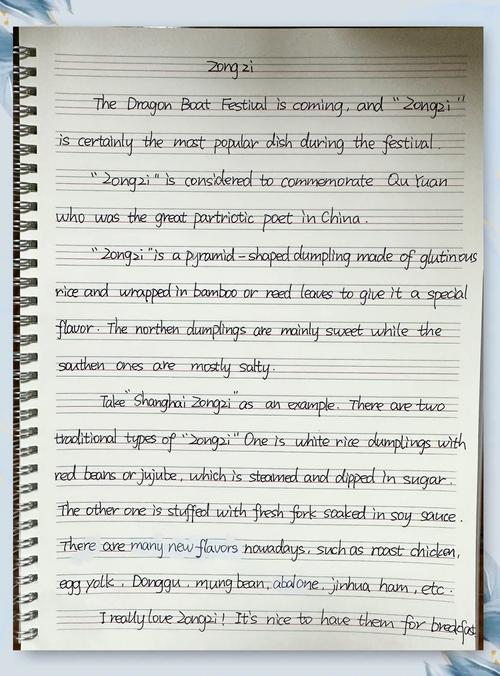 Zongzi
The Dragon Boat Festival is coming, and "Zongzi"
is certainly the most popular dish during the festival.
"Zongzi" is considered to commemorate Qu Yuan
who was the great partriotic poet in China.
"Zongzi" is a pyramid-shaped dumpling made of glutinous
rice and wrapped in bamboo or reed leaves to give it a special
flavor. The northen dumplings are mainly sweet while the
southen ones are mostly salty.
Take "Shanghai Zongzi" as an example. There are two
traditional types of "Zongzi" One is white rice dumplings with
red beans or jujube, which is steamed and dipped in sugar.
The other one is stuffed with fresh fork soaked in soy sauce.
There are many new flavors nowadays, such as roast chicken,
egg yolk, Donggu, mung bean, abalone, jinhua ham, etc.
I really love Zongzi! It's nice to have them for breakfast